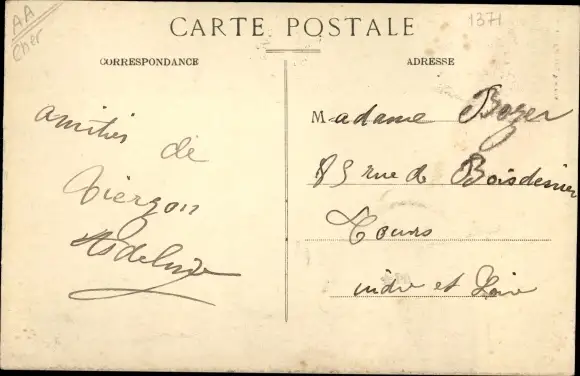 AA
Cher
CARTE POSTALE
1371
CORRESPONDANCE
ADRESSE
amitiés de
Vierzon
Madame Bozer
85 rue de Boisdenier
Tours
indre et Loire